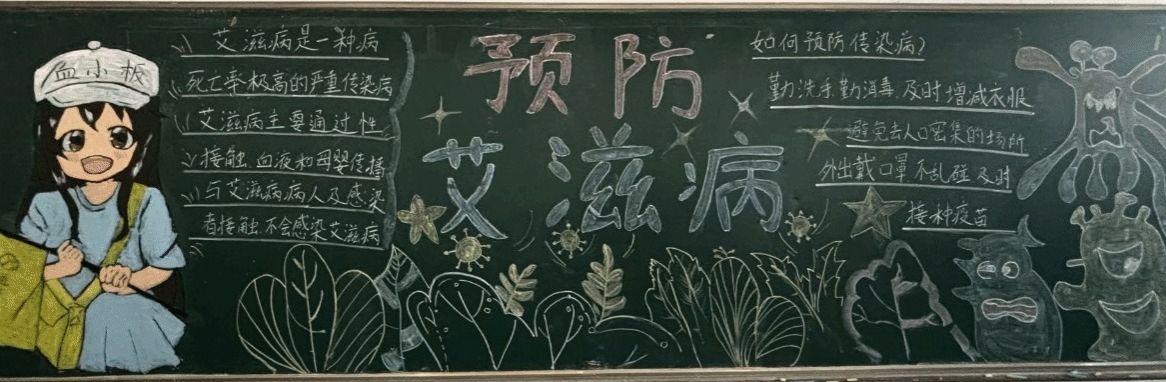 血小板
艾滋病是一种病
死亡率极高的严重传染病
艾滋病主要通过性
接触、血液和母婴传播
与艾滋病病人及感染
者接触不会感染艾滋病
预防
艾滋病
如何预防传染病?
勤洗手勤消毒及时增减衣服
避免去人口密集的场所
外出戴口罩不乱碰及时
接种疫苗